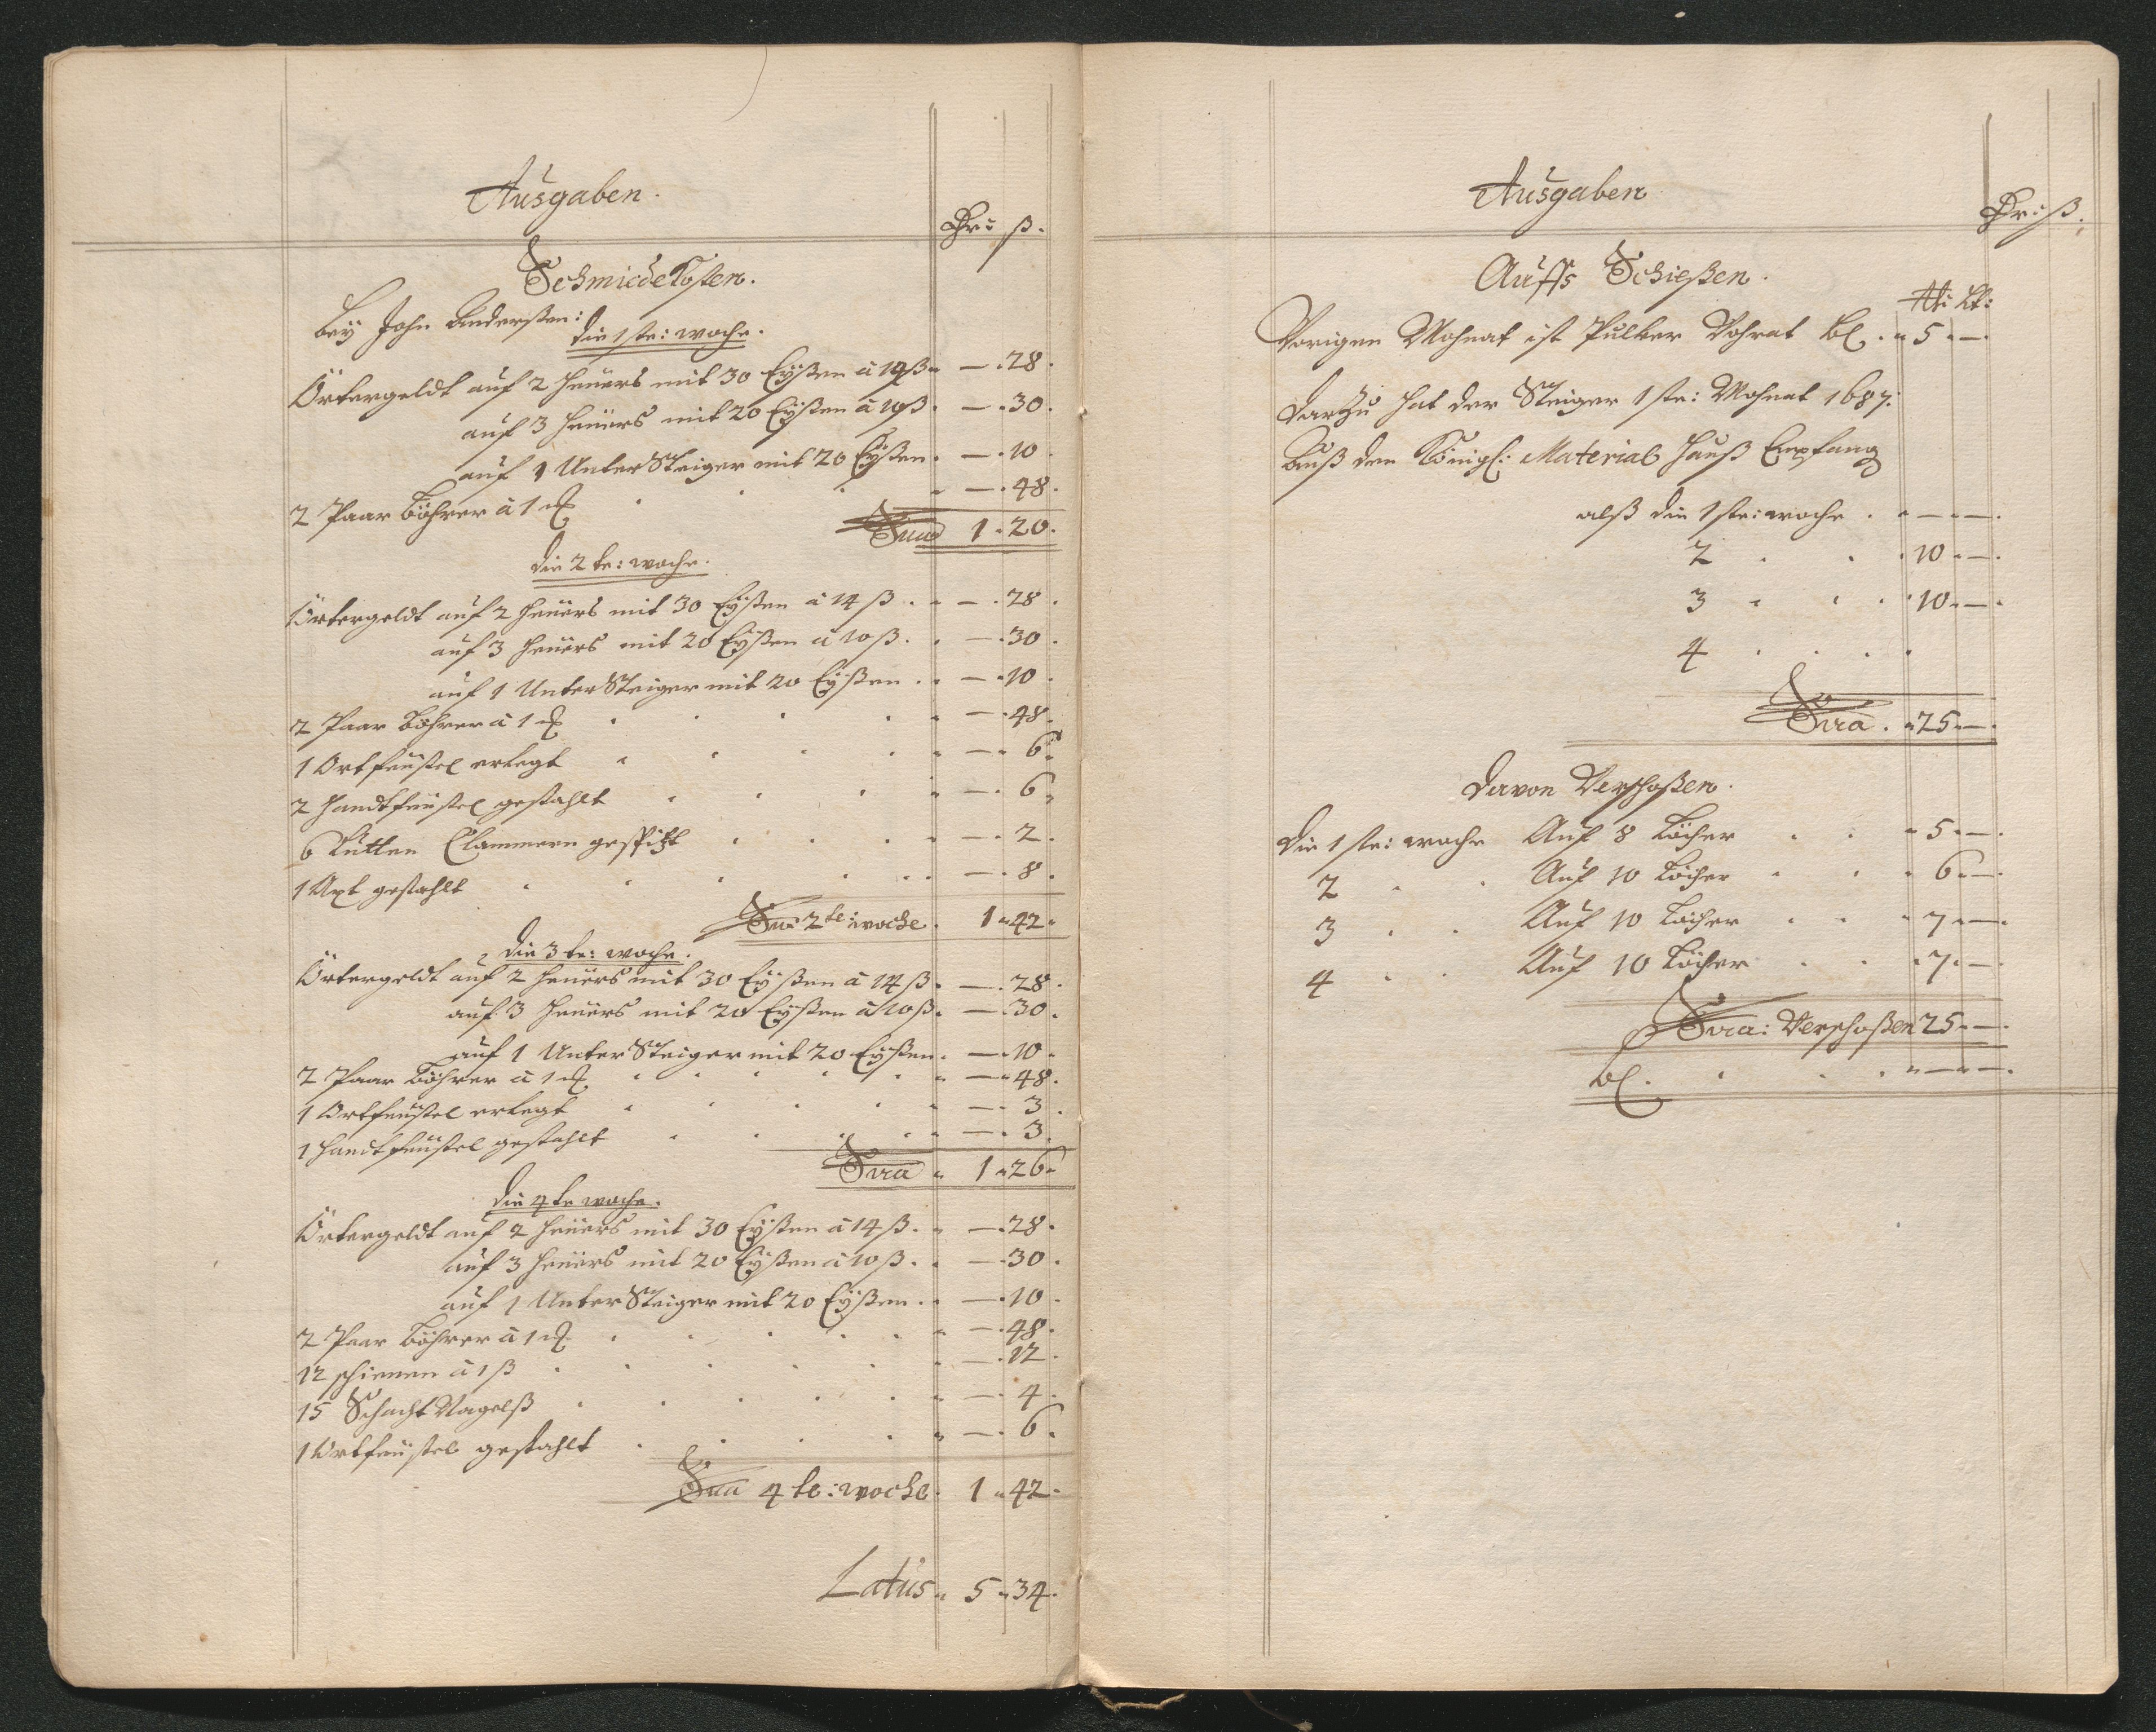 Ausgaben.
Thr: ß.
Schmiedekosten.
bey John Anderßen:
die 1ste: woche.
Örtergeldt auf 2 heuers mit 30 Eyßen à 14 ß. — . 28.
auf 3 heuers mit 20 Eyßen à 10 ß. — . 30.
auf 1 UnterSteiger mit 20 Eyßen. — . 10.
2 Paar böhrer à 1 — . 48.
Sua 1 . 20.
die 2te: woche.
Örtergeldt auf 2 heuers mit 30 Eyßen à 14 ß. — . 28.
auf 3 heuers mit 20 Eyßen à 10 ß. — . 30.
auf 1 UnterSteiger mit 20 Eyßen. — . 10.
2 Paar böhrer à 1 — . 48.
1 Ortfeustel erlegt — . 6.
2 handtfeustel gestahlt — . 6.
6 Clammern gespitzt — . 2.
1 Axt gestahlt — . 8.
Sua 2te: woche. 1 . 42.
die 3te: woche.
Örtergeldt auf 2 heuers mit 30 Eyßen à 14 ß. — . 28.
auf 3 heuers mit 20 Eyßen à 10 ß. — . 30.
auf 1 UnterSteiger mit 20 Eyßen. — . 10.
2 Paar böhrer à 1 — . 48.
1 Ortfeustel erlegt — . 3.
1 handtfeustel gestahlt — . 3.
Sua 1 . 26.
die 4te woche.
Örtergeldt auf 2 heuers mit 30 Eyßen à 14 ß. — . 28.
auf 3 heuers mit 20 Eyßen à 10 ß. — . 30.
auf 1 UnterSteiger mit 20 Eyßen. — . 10.
2 Paar böhrer à 1 — . 48.
12 schienen à 1 ß — . 12.
15 Schacht Nagelß — . 4.
1 Ortfeustel gestahlt — . 6.
Sua 4te: woche. 1 . 42.
Latus. 5 . 34.
Ausgaben
Thr: ß.
Auffs Schießen.
℔: Lt:
Vorigen Mohnat ist Pulver Vohrat bl. 5 . —.
darzu hat der Steiger 1ste: Mohnat 1687.
auß den Königl: Material hauß Empfang
alß die 1ste: woche . — . —.
2 . . 10 . —.
3 . . 10 . —.
4 . . .
Sua. 25 . —.
davon Verschoßen.
die 1ste: woche Auf 8 Löcher . 5 . —.
2 . Auf 10 Löcher . 6 . —.
3 . . Auf 10 Löcher . 7 . —.
4 . . Auf 10 Löcher . 7 . —.
Sua: Verschoßen 25 . —.
bl. . . — . —.